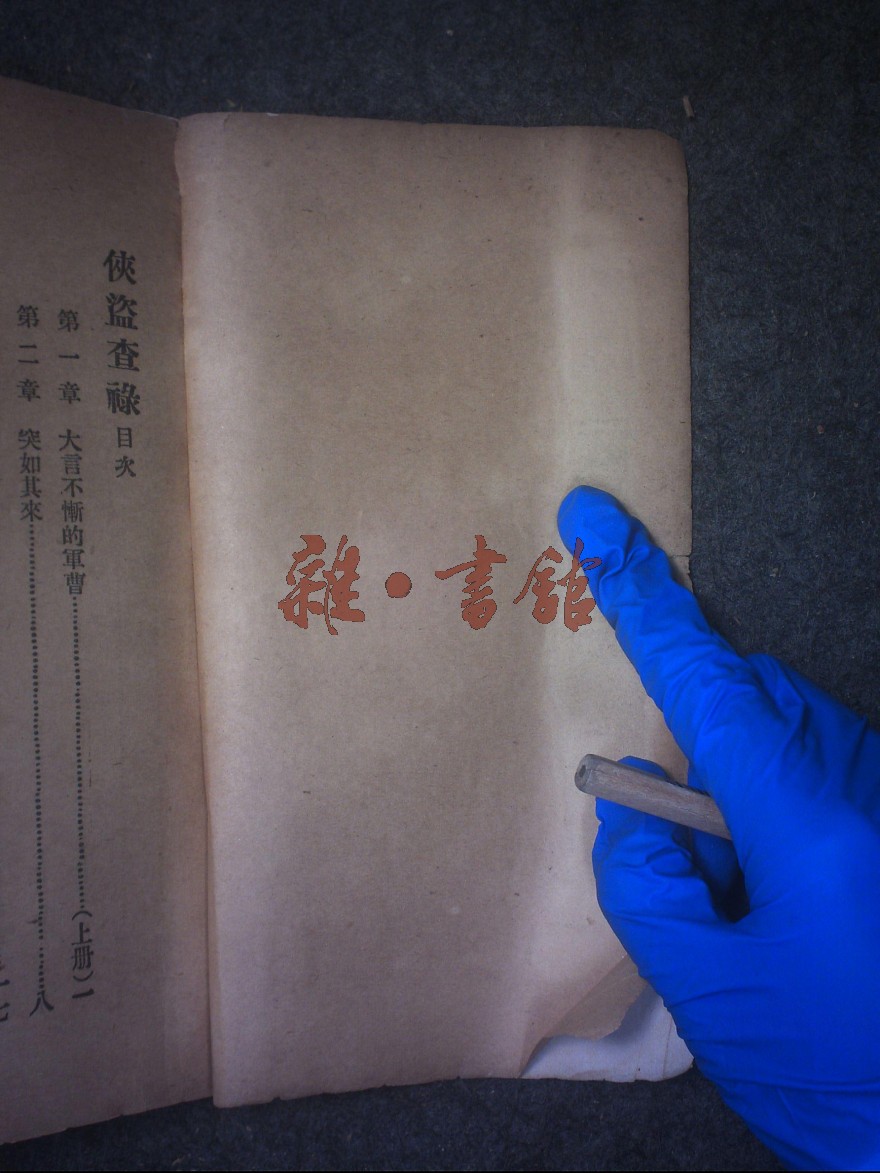 俠盜查祿目次
第一章 大言不慚的軍曹……………………(上册)一
第二章 突如其來……………………八
一七
雜·書館